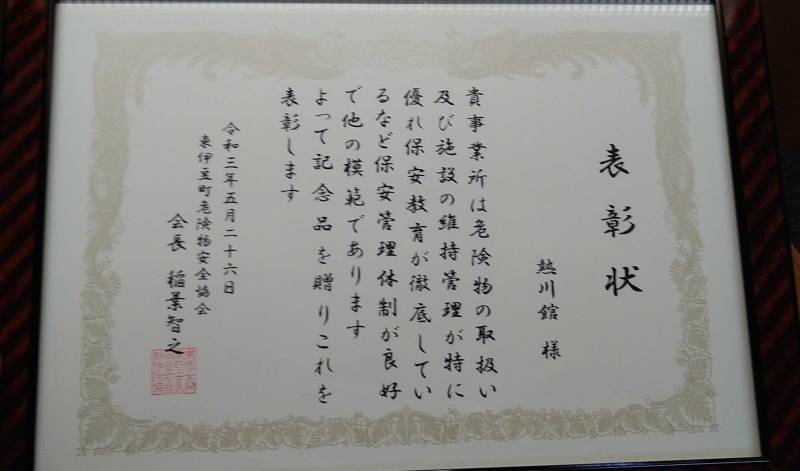 表彰状
熱川館 様
貴事業所は危険物の取扱い
及び施設の維持管理が特に
優れ保安教育が徹底してい
るなど保安管理体制が良好
で他の模範であります
よって記念品を贈りこれを
表彰します
令和三年五月二十六日
東伊豆町危険物安全協会
会長 稲葉智之